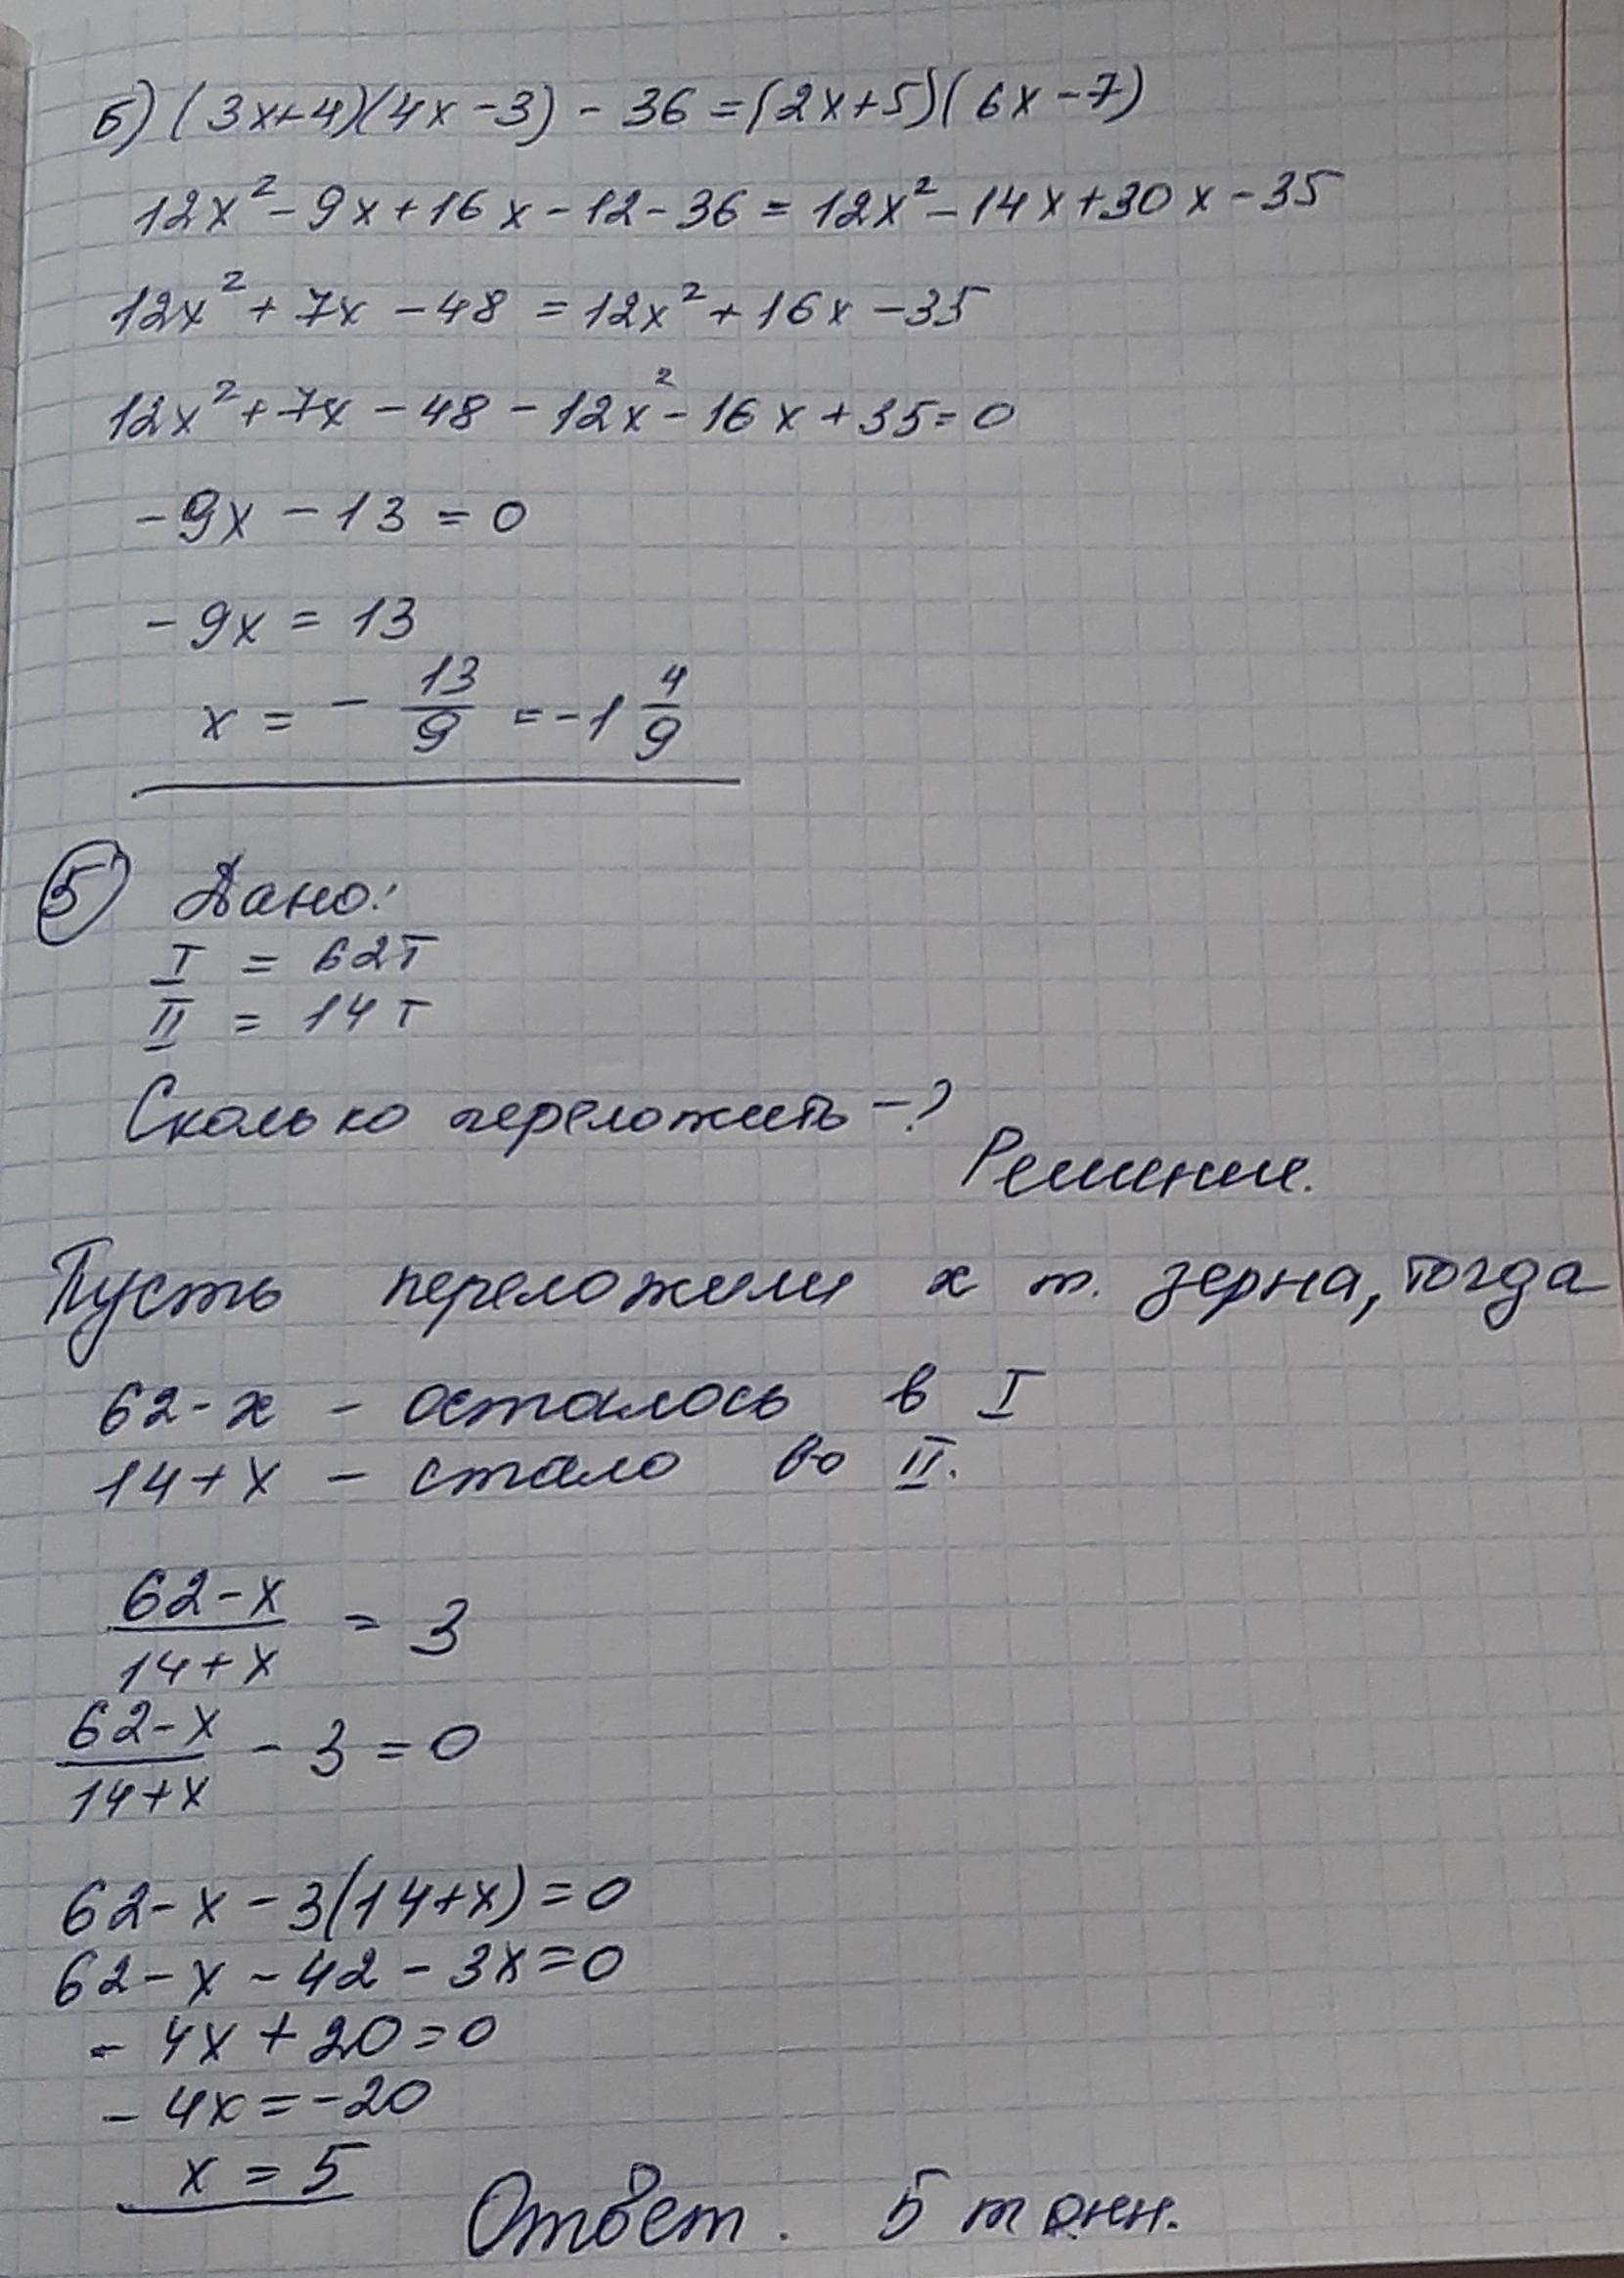 б) (3x+4)(4x-3) - 36 = (2x+5)(6x-7)
12x² - 9x + 16x - 12 - 36 = 12x² - 14x + 30x - 35
12x² + 7x - 48 = 12x² + 16x - 35
12x² + 7x - 48 - 12x² - 16x + 35 = 0
-9x - 13 = 0
-9x = 13
x = - 13/9 = -1 4/9
5 Дано:
I = 62т
II = 14т
Сколько переложить - ?
Решение.
Пусть переложили x т. зерна, тогда
62-x - осталось в I
14+x - стало во II.
62-x/14+x = 3
62-x/14+x - 3 = 0
62-x-3(14+x)=0
62-x-42-3x=0
-4x+20=0
-4x=-20
x=5
Ответ. 5 тонн.